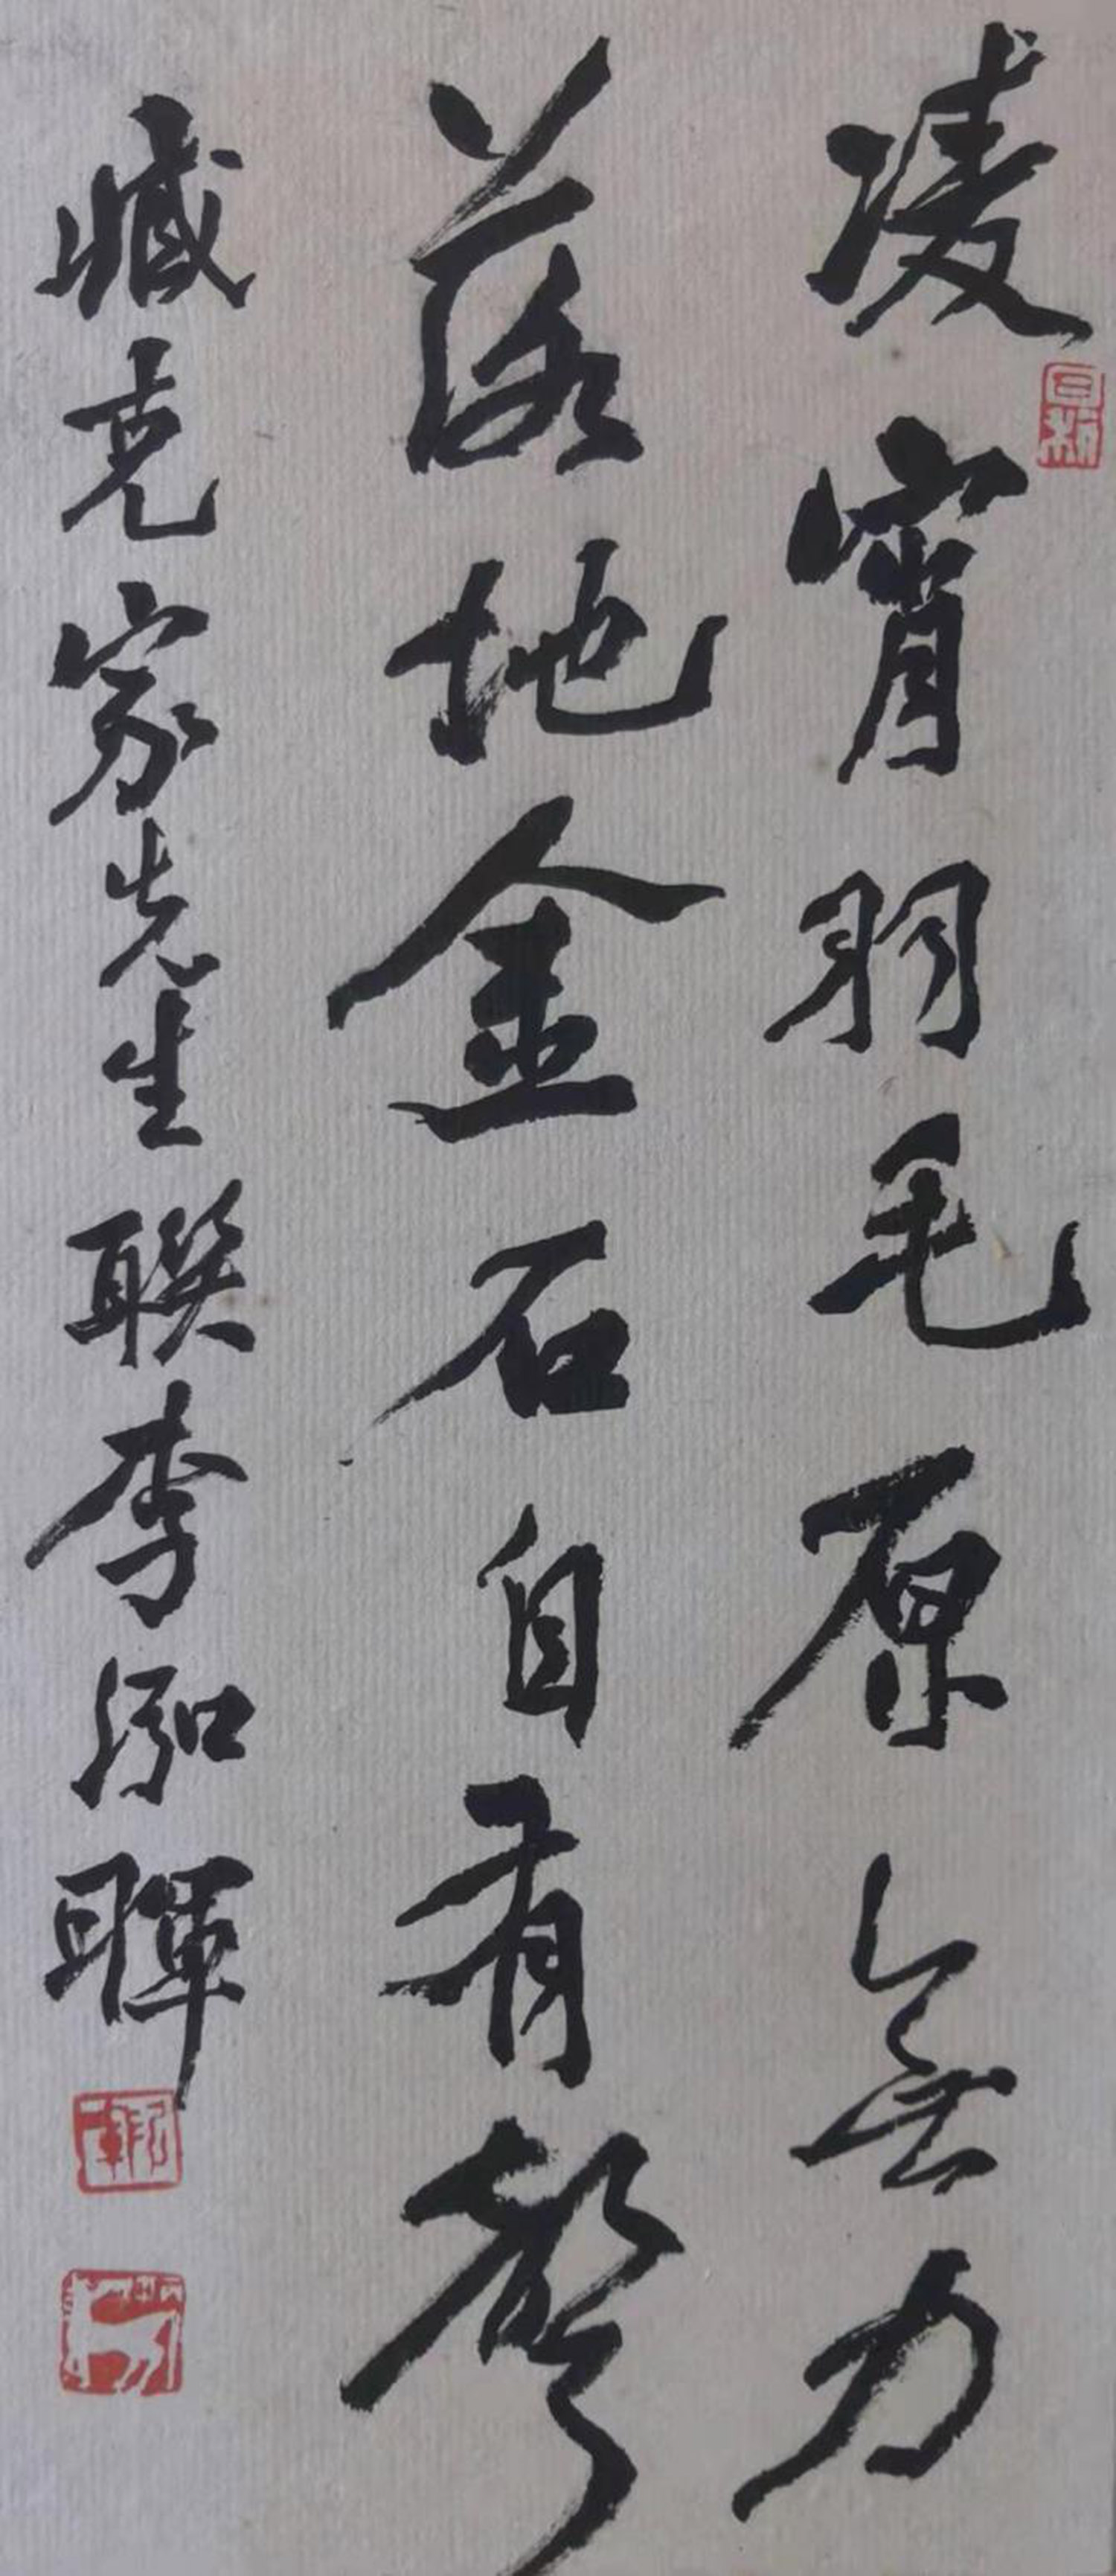 凌宵羽毛原無力
落地金石自有聲
臧克家先生聯李泓暉